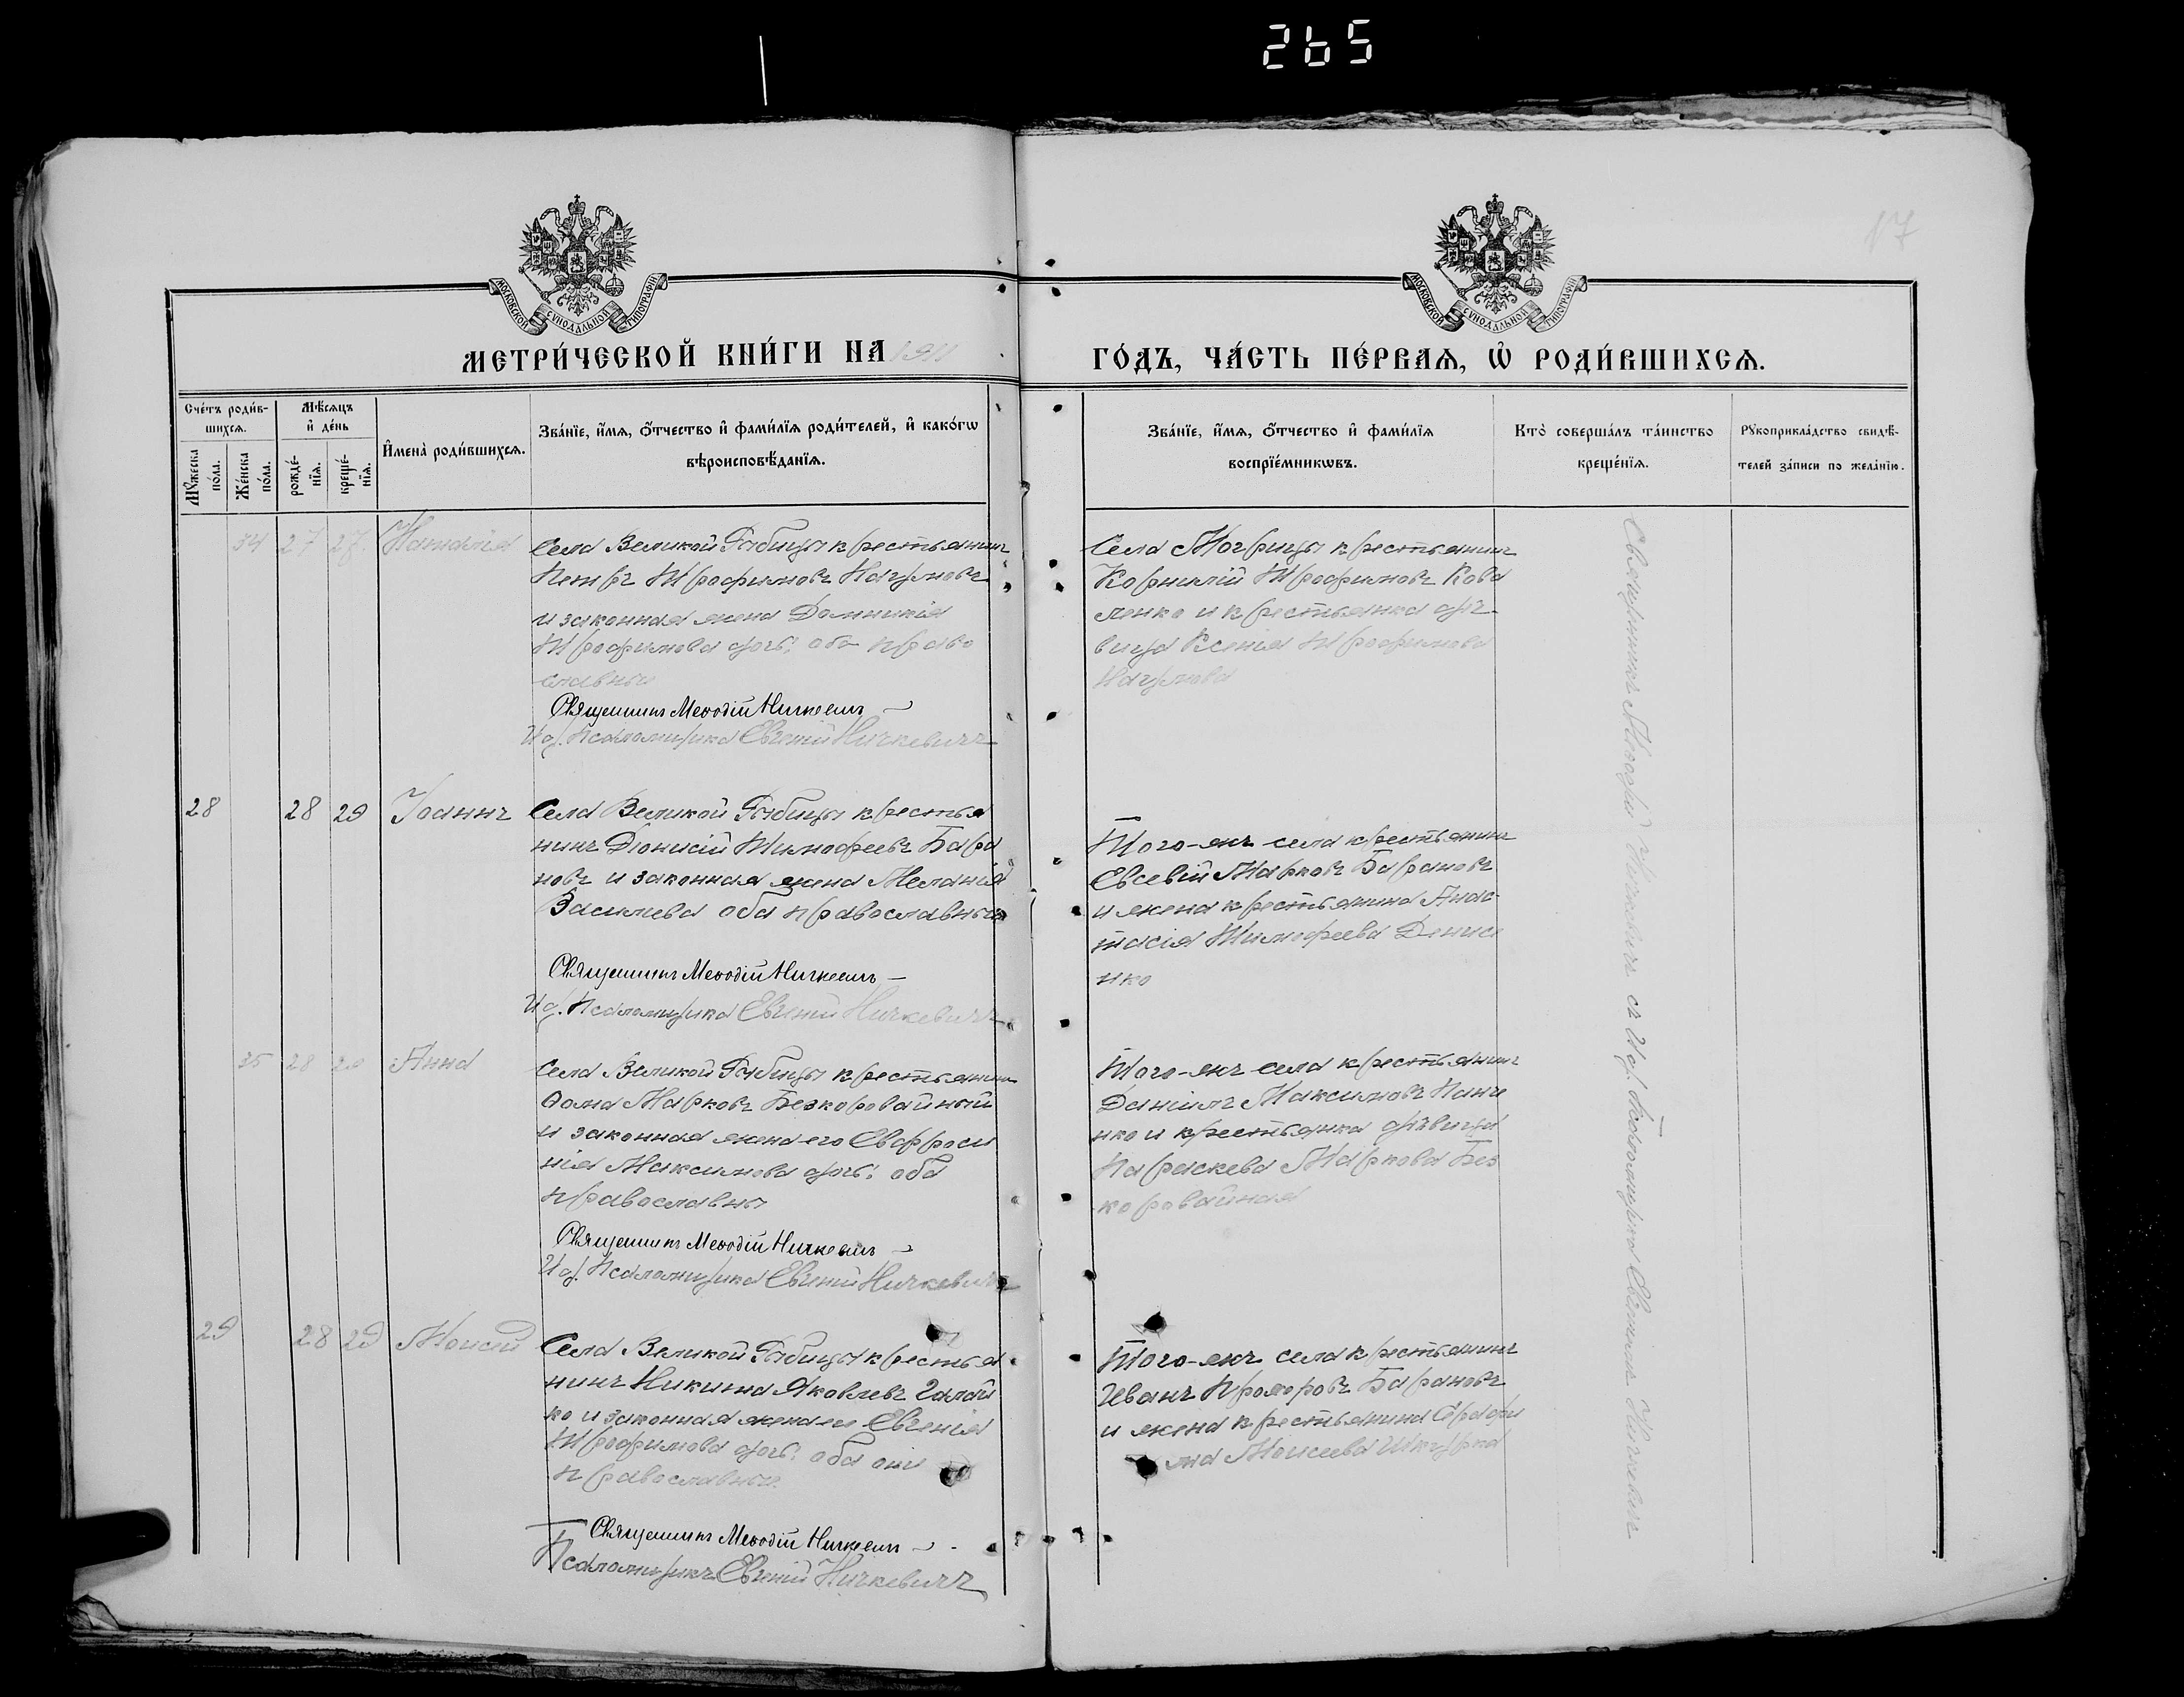 265
17
МОСКОВСКОЙ СѴНОДАЛЬНОЙ ТИПОГРАФІИ
МОСКОВСКОЙ СѴНОДАЛЬНОЙ ТИПОГРАФІИ
МЕТРИ́ЧЕСКОЙ КНИ́ГИ НА 1911
ГО́ДЪ, ЧА́СТЬ ПЕ́РВАѦ, Ѡ҆ РОДИ́ВШИХСѦ.
Сче́тъ роди́в-
шихсѧ.
Мꙋ́жеска
по́ла.
Же́нска
по́ла.
Мѣ́сѧцъ
и҆ де́нь
рожде́-
нїѧ.
креще́-
нїѧ.
И҆мена̀ роди́вшихсѧ.
Зва́нїе, и҆́мѧ, ѻ҆́тчество и҆ фами́лїѧ роди́телей, и҆ како́гѡ
вѣроисповѣ́данїѧ.
Зва́нїе, и҆́мѧ, ѻ҆́тчество и҆ фами́лїѧ
воспрїе́мникѡвъ.
Кто̀ соверша́лъ та́инство
креще́нїѧ.
Рꙋкоприкла́дство свидѣ́-
телей за́писи по жела́нїю.
34 27 27 Наталія
Села Великой Рыбицы крестьянинъ
Петръ Трофимовъ Наумовъ
и законная жена Домникія
Трофимова дочь; оба право
славные
Священникъ Меѳодій Ничкевичъ
И д. Псаломщика Евгеній Ничкевичъ
Села Могрицы крестьянинъ
Корнилій Трофимовъ Кова
ленко и крестьянка дѣ-
вица Ксенія Трофимова
Наумова
28 28 29 Іоаннъ
Села Великой Рыбицы крестья
нинъ Діонисій Тимофеевъ Бара
новъ и законная жена Меланія
Васильева оба православные
Священникъ Меѳодій Ничкевичъ
И д. Псаломщика Евгеній Ничкевичъ
Того-же села крестьянинъ
Евсевій Марковъ Барановъ
и жена крестьянина Анас-
тасія Тимофеева Денисе
нко
35 28 29 Анна
Села Великой Рыбицы крестьянинъ
Ѳома Марковъ Безкоровайный
и законная жена его Евфроси
нія Максимова дочь; оба
православны
Священникъ Меѳодій Ничкевичъ
И д. Псаломщика Евгеній Ничкевичъ
Того-же села крестьянинъ
Даніилъ Максимовъ Панче
нко и крестьянка дѣвица
Параскева Маркова Без
коровайная
29 28 29 Моисей
Села Великой Рыбицы крестья
нинъ Никита Яковлевъ Галай
ко и законная жена его Евгенія
Трофимова дочь; оба они
православные.
Священникъ Меѳодій Ничкевичъ
Псаломщикъ Евгеній Ничкевичъ
Того-же села крестьянинъ
Иванъ Прохоровъ Барановъ
и жена крестьянина Серафи
ма Моисеева Шкурка
Священникъ Меѳодій Ничкевичъ съ И д. Псаломщика Евгеніемъ Ничкевичъ